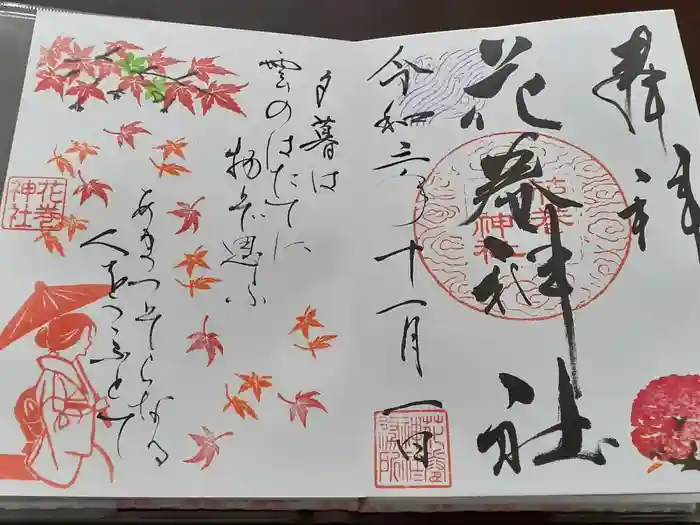 奉拝
花巻神社
花巻
神社
令和三年十一月一日
夕暮は
雲のはたてに
物そ思ふ
あまつそらなる
人をこふとて
花巻
神社